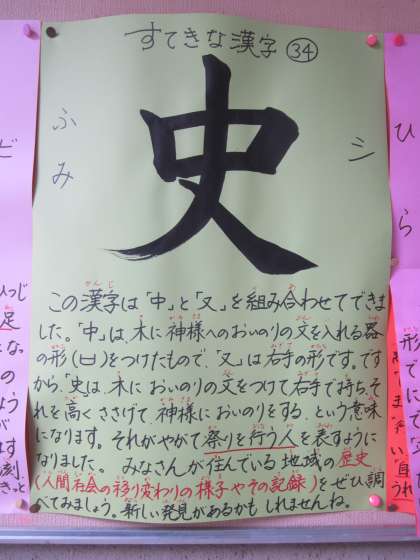 すてきな漢字 ㉞
シ
ふみ
史
この漢字は「中」と「又」を組み合わせてできま
した。「中」は、木に神様へのおいのりの文を入れる器
の形(口)をつけたもので、「又」は右手の形です。です
から「史」は、木においのりの文をつけて右手で持ち、そ
れを高くささげて神様においのりをする、という意味
になります。それがやがて祭りを行う人を表すように
なりました。みなさんが住んでいる地域の歴史
(人間社会の移り変わりの様子やその記録)をぜひ調
べてみましょう。新しい発見があるかもしれませんね。
ひら
ひつじ
足